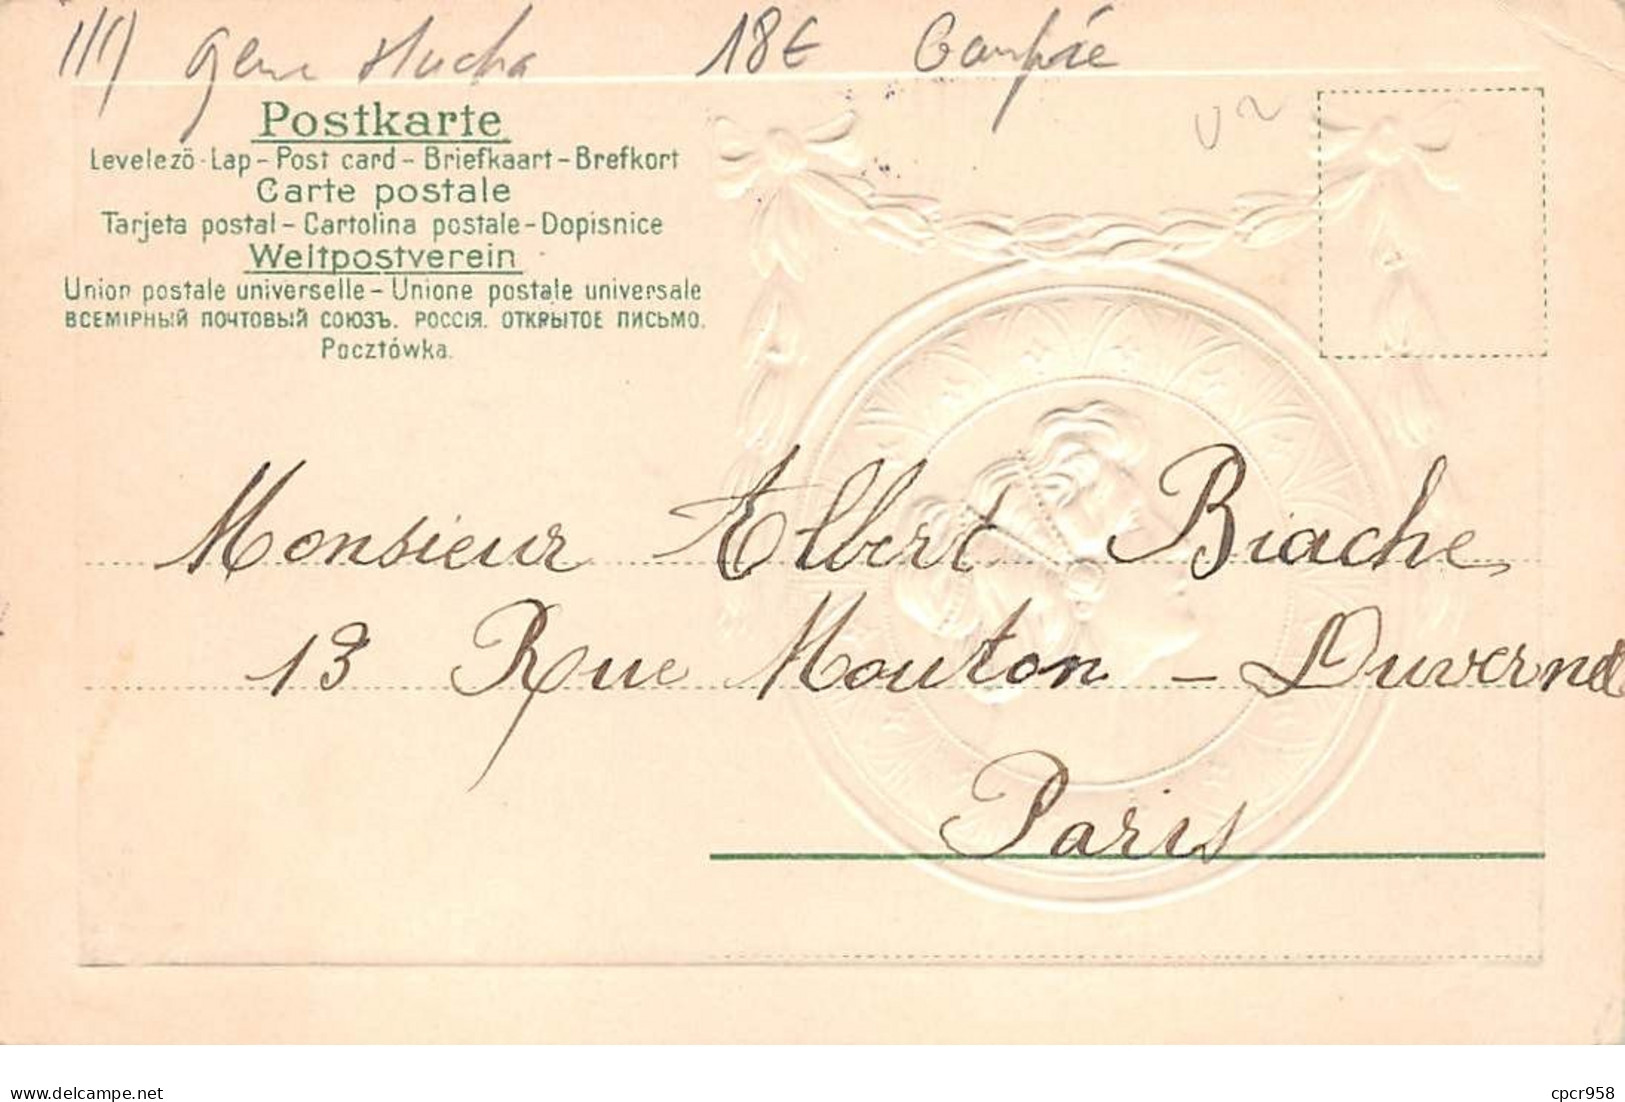 genre Mucha 18€ Gaufrée
Postkarte
Levelezö-Lap - Post card - Briefkaart - Brefkort
Carte postale
Tarjeta postal - Cartolina postale - Dopisnice
Weltpostverein
Union postale universelle - Unione postale universale
ВСЕМІРНЫЙ ПОЧТОВЫЙ СОЮЗЪ. РОССІЯ. ОТКРЫТОЕ ПИСЬМО.
Pocztówka.
Monsieur Albert Biache
13 Rue Mouton-Duvernet
Paris
delcampe.net
cpcr958